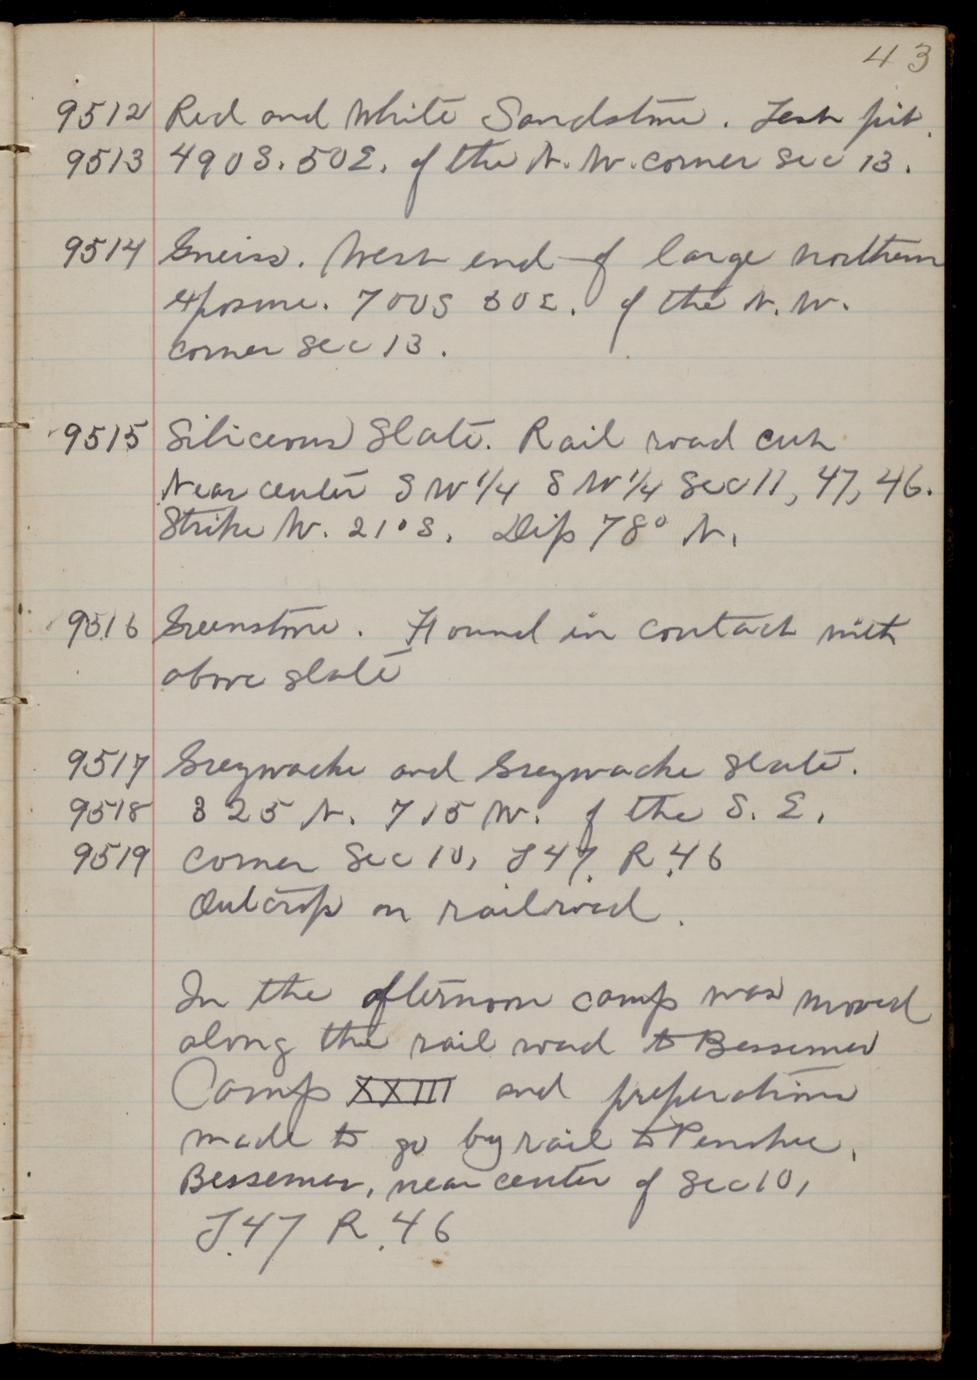 43
9512 Red and White Sandstone. Test pit.
9513 490 S. 50 E. of the N. W. corner Sec 13.
9514 Gneiss. West end of large northern
exposure. 700 S 50 E. of the N. W.
corner Sec 13.
9515 Siliceous Slate. Rail road cut
Near center S W 1/4 S W 1/4 Sec 11, 47, 46.
Strike W. 21° S. Dip 78° N.
9516 Greenstone. Found in contact with
above slate
9517 Greywacke and Greywacke slate.
9518 325 N. 715 W. of the S. E.
9519 corner Sec 10, T. 47. R. 46
Outcrop on railroad.
In the afternoon camp was moved
along the rail road to Bessemer
Camp XXIII and preparations
made to go by rail to Penokee.
Bessemer, near center of Sec 10,
T. 47 R. 46